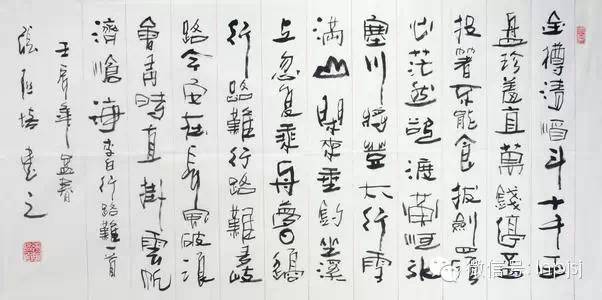 金樽清酒斗十千玉
盤珍羞直萬錢停盃
投箸不能食拔劍四顧
心茫然欲渡黄河冰
塞川將登太行雪
满山閑來垂釣坐溪
上忽復乘舟夢日邊
行路難行路難多歧
路今安在長風破浪
會有時直掛雲帆
濟滄海 李白行路難一首
壬辰年孟春
書之
微信号: